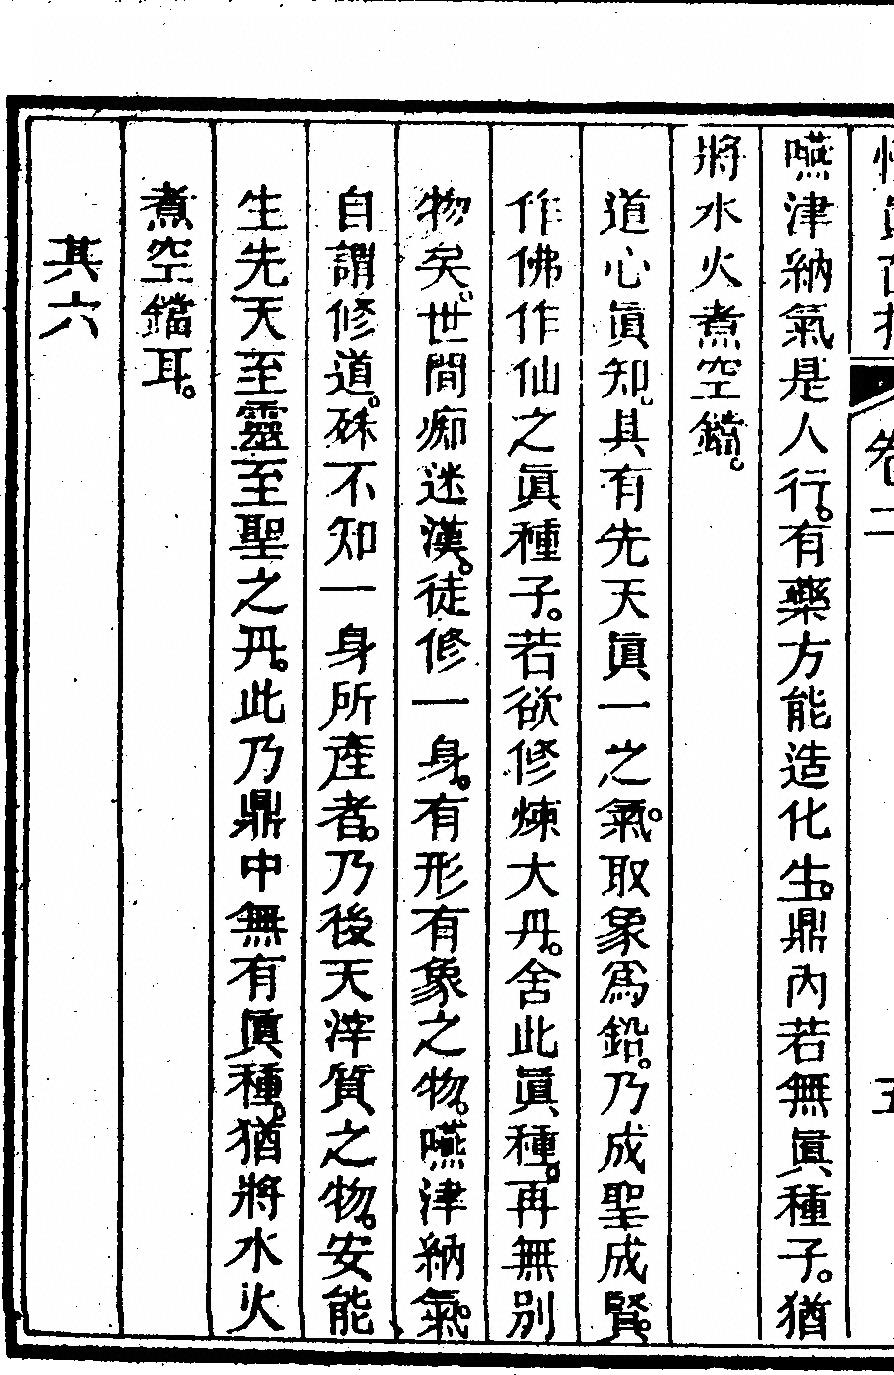 悟真直指 卷二 五
嚥津納氣是人行。有藥方能造化生。鼎內若無眞種子。猶
將水火煮空鐺。
道心眞知。具有先天眞一之氣。取象爲鉛。乃成聖成賢。
作佛作仙之眞種子。若欲修煉大丹。舍此眞種。再無別
物矣。世間痴迷漢。徒修一身。有形有象之物。嚥津納氣。
自謂修道。殊不知一身所產者。乃後天滓質之物。安能
生先天至靈至聖之丹。此乃鼎中無有眞種。猶將水火
煮空鐺耳。
其六